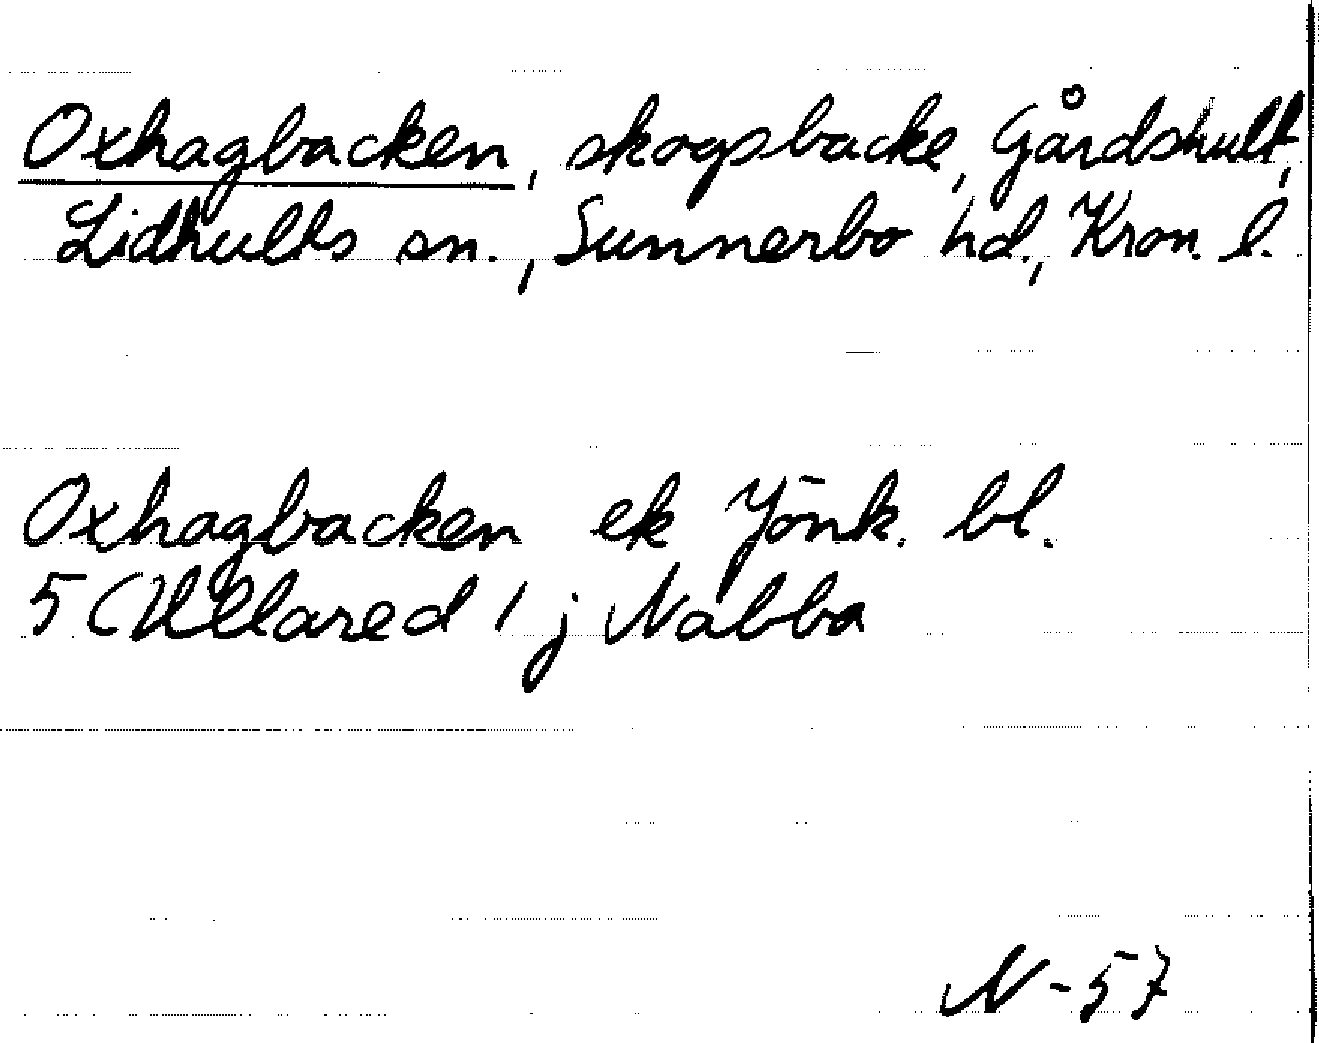 Oxhagbacken, skogsbacke, Gårdshult,
Lidhults sn., Sunnerbo hd., Kron. l.
Oxhagbacken ek Jönk. bl.
5 (Ullared) j Nabba
N-57